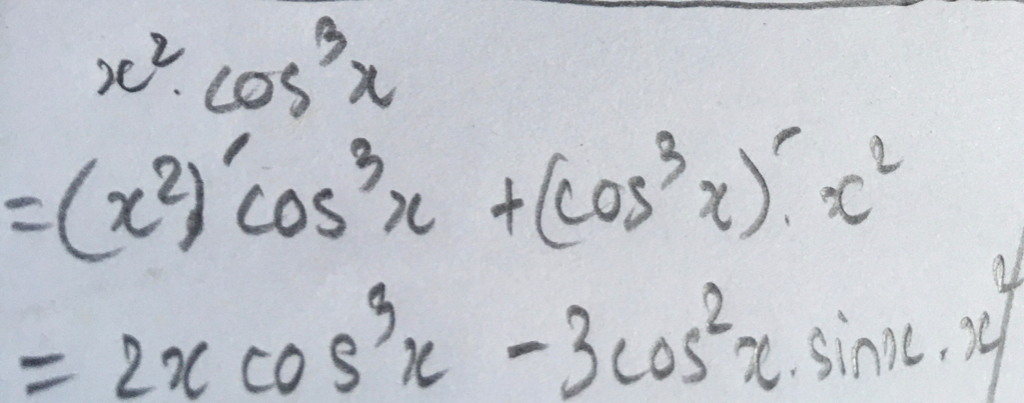 x². cos³x
=(x²)′cos³x +(cos³x)′. x²
= 2x cos³x -3cos²x.sinx.x²